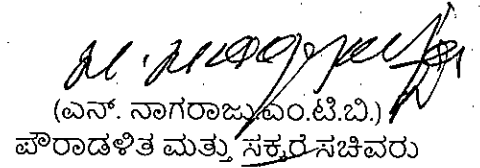 (ಎನ್. ನಾಗರಾಜು ಎಂ.ಟಿ.ಬಿ.)
ಪೌರಾಡಳಿತ ಮತ್ತು ಸಕ್ಕರೆ ಸಚಿವರು